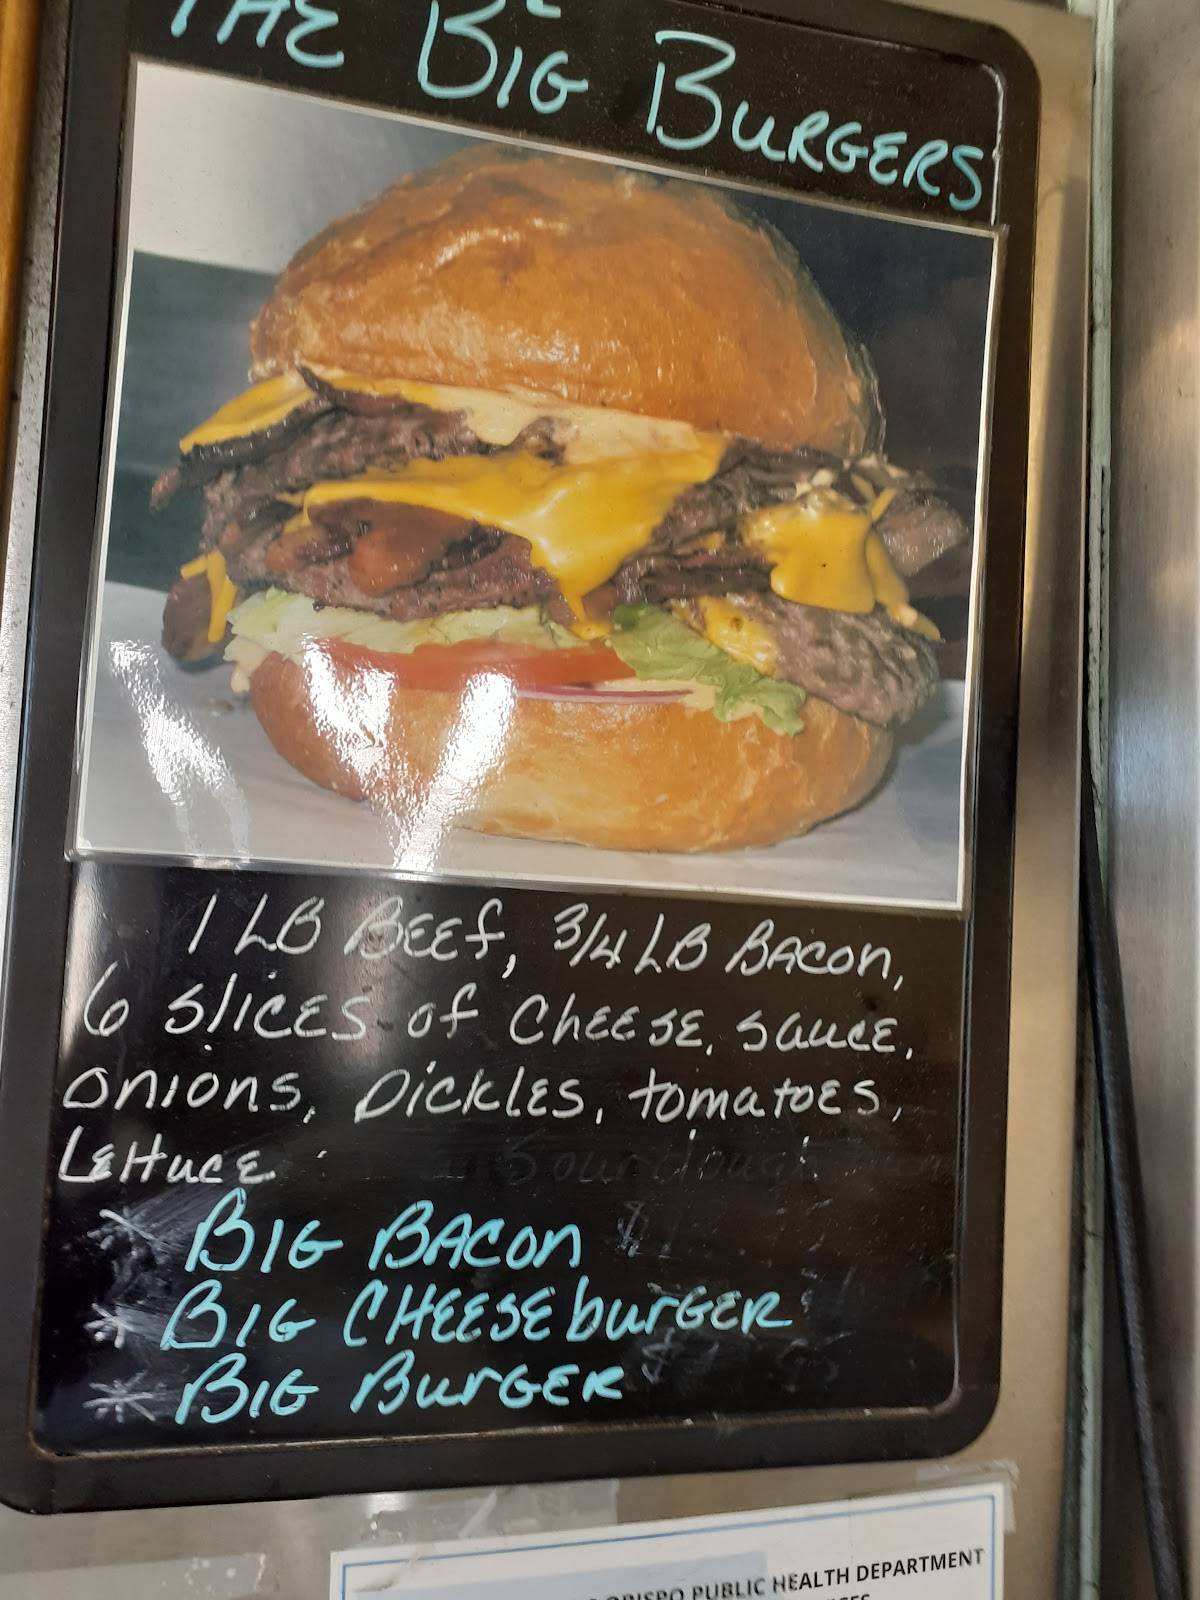 THE BIG BURGERS
1 LB BEEF, 3/4 LB BACON,
6 SLICES OF CHEESE, SAUCE,
ONIONS, PICKLES, TOMATOES,
LETTUCE
* BIG BACON $
* BIG CHEESEBURGER
* BIG BURGER $
PUBLIC HEALTH DEPARTMENT